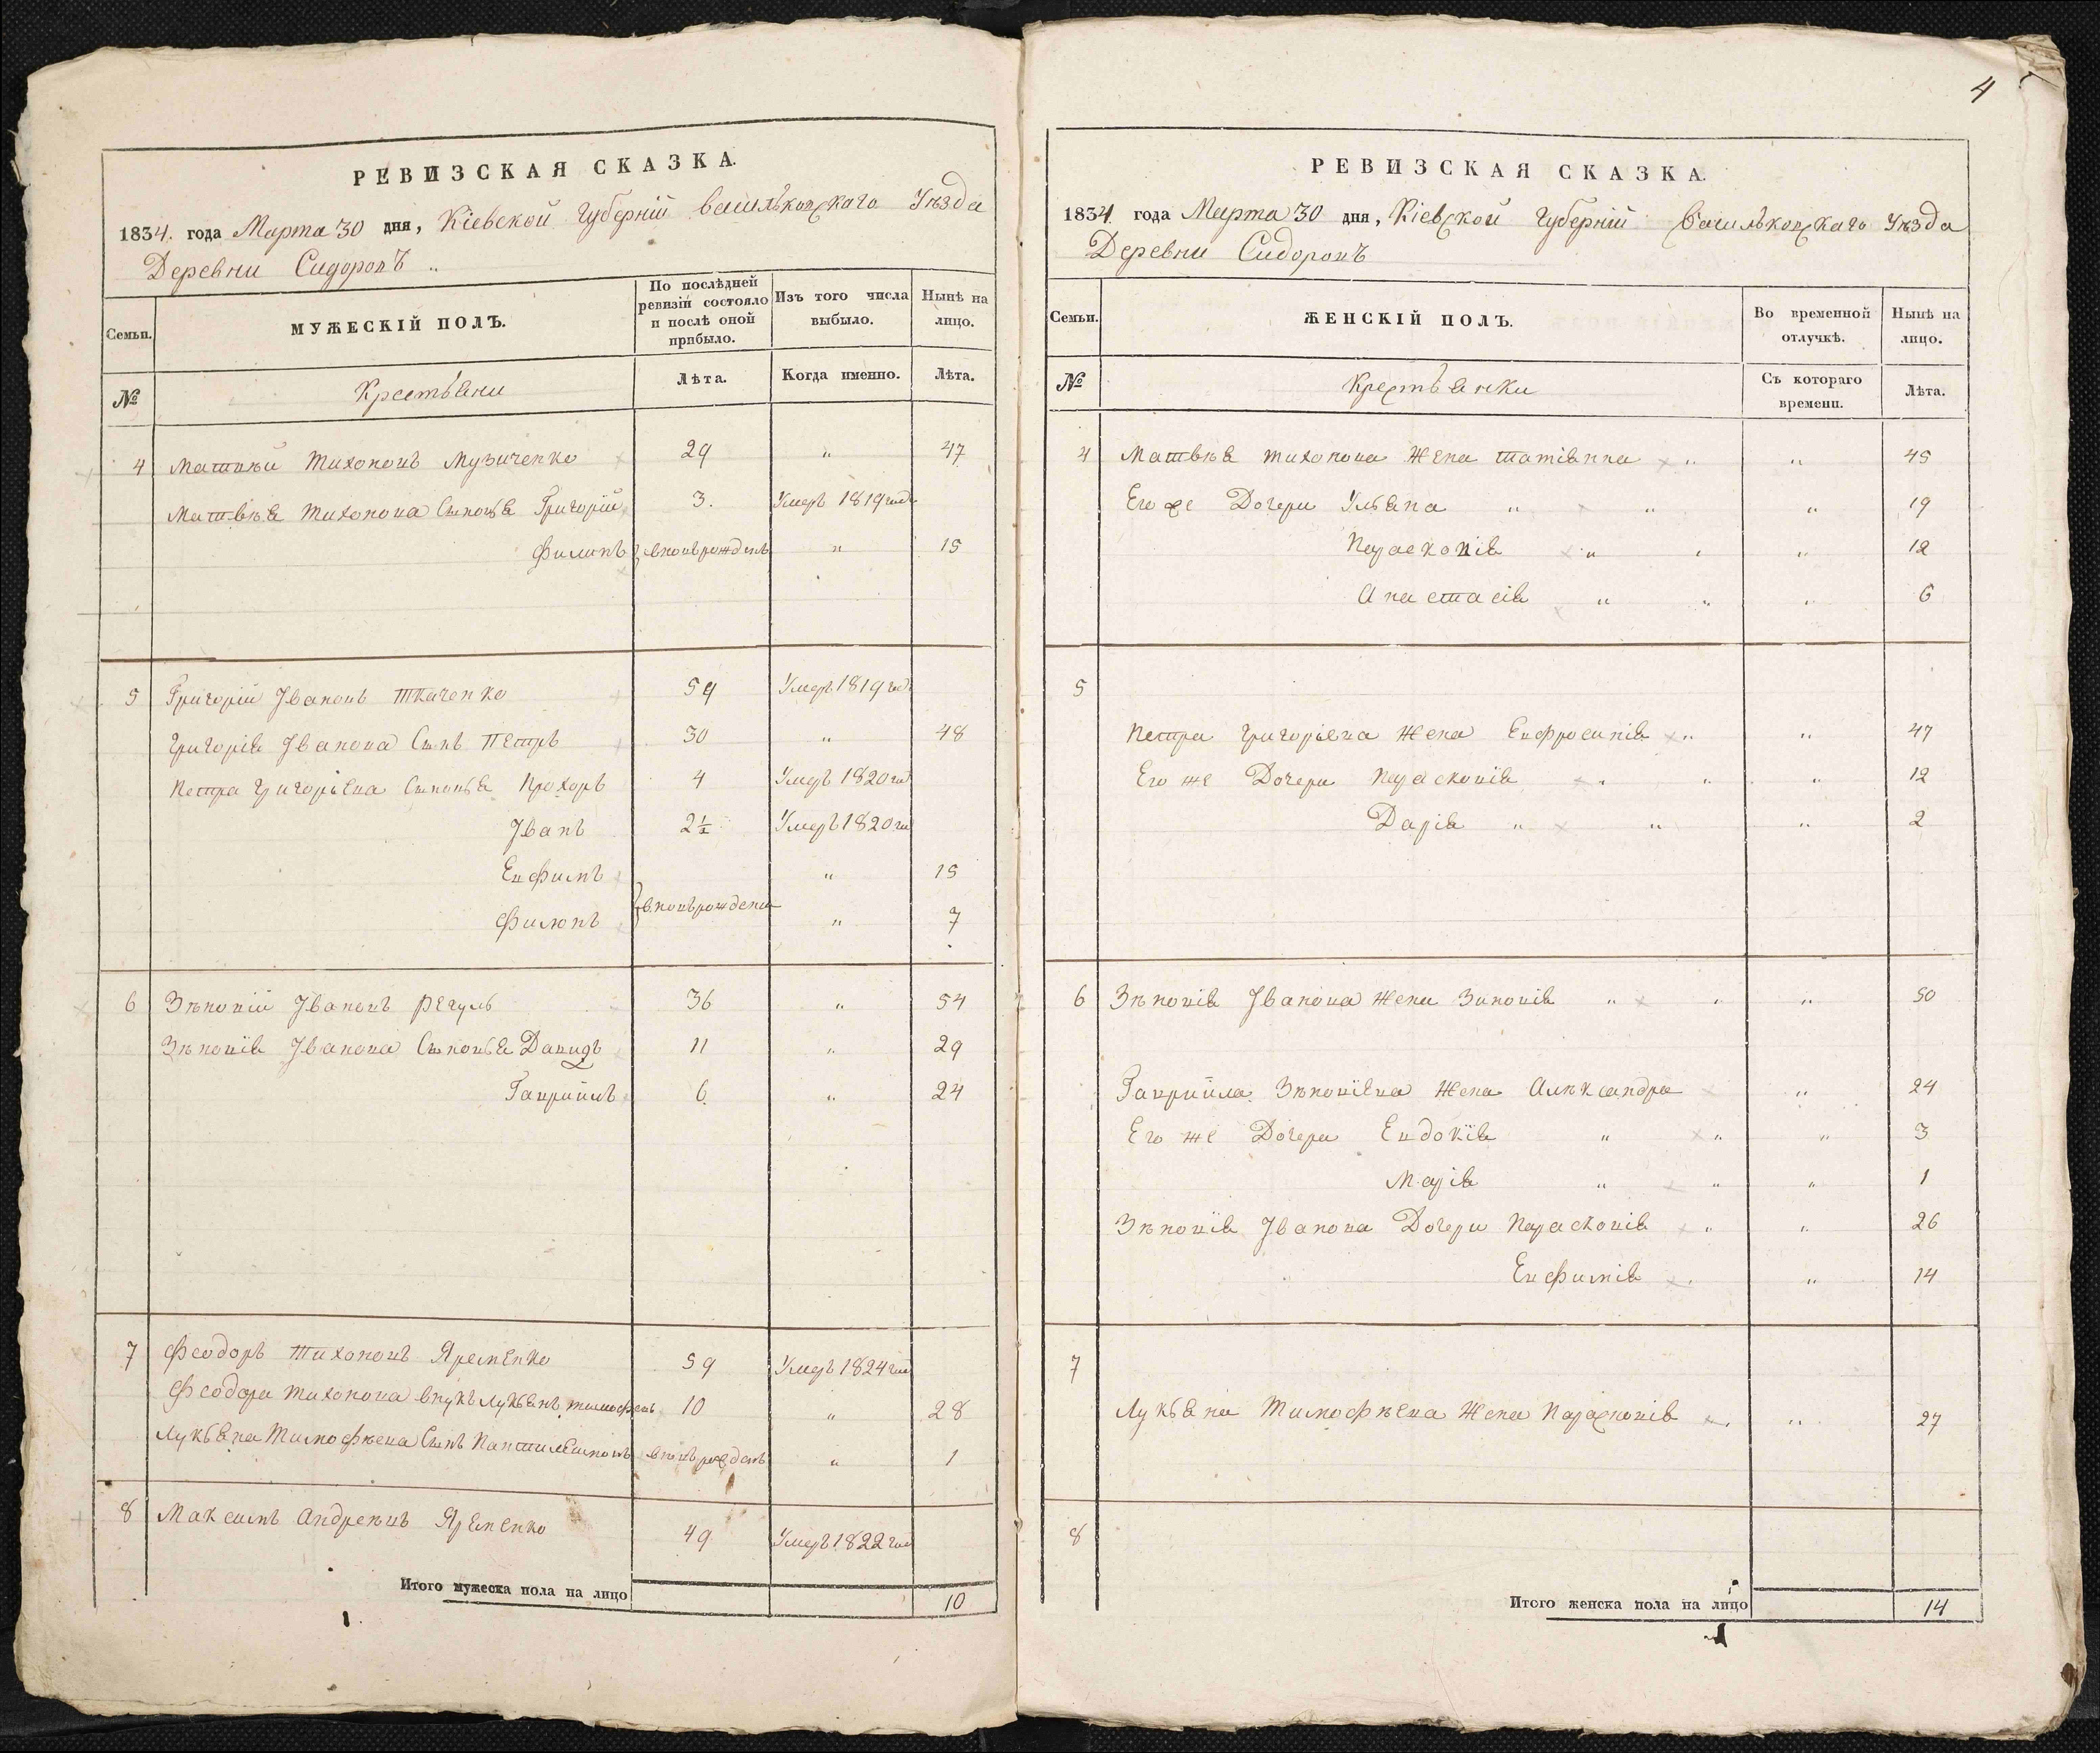 4
РЕВИЗСКАЯ СКАЗКА.
1834. года Марта 30 дня, Кіевской Губерніи Васильковскаго Уѣзда
Деревни Сидоровъ „
Семьи.
МУЖЕСКІЙ ПОЛЪ.
По послѣдней ревизіи состояло и послѣ оной прибыло.
Изъ того числа выбыло.
Нынѣ на лицо.
№
Крестьяни
Лѣта.
Когда именно.
Лѣта.
4 Матвѣй Тихоновъ Музиченко 29 „ 47
Матвѣя Тихонова Сыновья Григорій 3. Умеръ 1819 год
Филипъ вновьрожденъ „ 15
5 Григорій Ивановъ Ткаченко 59 Умеръ 1819 год
Григорія Иванова Сынъ Петръ 30 „ 48
Петра Григорьева Сыновья Прохоръ 4 Умеръ 1820 го
Иванъ 2½ Умеръ 1820 го
Евфимъ „ 15
вновьрождени
Филюпъ „ 7
6 Зѣновій Ивановъ Регуль 36 „ 54
Зѣновія Иванова Сыновья Давидъ 11 „ 29
Гавриилъ 6 „ 24
7 Феодоръ Тихоновъ Яременко 59 Умеръ 1824 год
Феодора Тихонова внукъ Лукьянъ Тимофеевъ 10 „ 28
Лукьяна Тимофѣева Сынъ Пантилеимонъ вновьрожденъ „ 1
8 Максимъ Андреевъ Яременко 49 Умеръ 1822 год
Итого мужеска пола на лицо 10
РЕВИЗСКАЯ СКАЗКА.
1834. года Марта 30 дня, Кіевской Губерніи Васильковскаго Уѣзда
Деревни Сидоровъ
Семьи.
ЖЕНСКІЙ ПОЛЪ.
Во временной отлучкѣ.
Нынѣ на лицо.
№
Крестьянки
Съ котораго времени.
Лѣта.
4 Матвѣя Тихонова Жена Татіянна „ „ 45
Его же Дочери Ульяна „ „ „ 19
Парасковія „ „ „ 12
Анастасія „ „ „ 6
5
Петра Григорьева Жена Евфросинія „ „ 47
Его же Дочери Парасковія „ „ „ 12
Дарія „ „ „ 2
6 Зѣновія Иванова Жена Зиновія „ „ „ 50
Гавриила Зѣновіева Жена Алѣксандра „ 24
Его же Дочери Евдокія „ „ „ 3
Марія „ „ „ 1
Зѣновія Иванова Дочери Парасковія „ „ 26
Евфимія „ „ 14
7
Лукьяна Тимофѣева Жена Парасковія „ „ 27
8
Итого женска пола на лицо 14